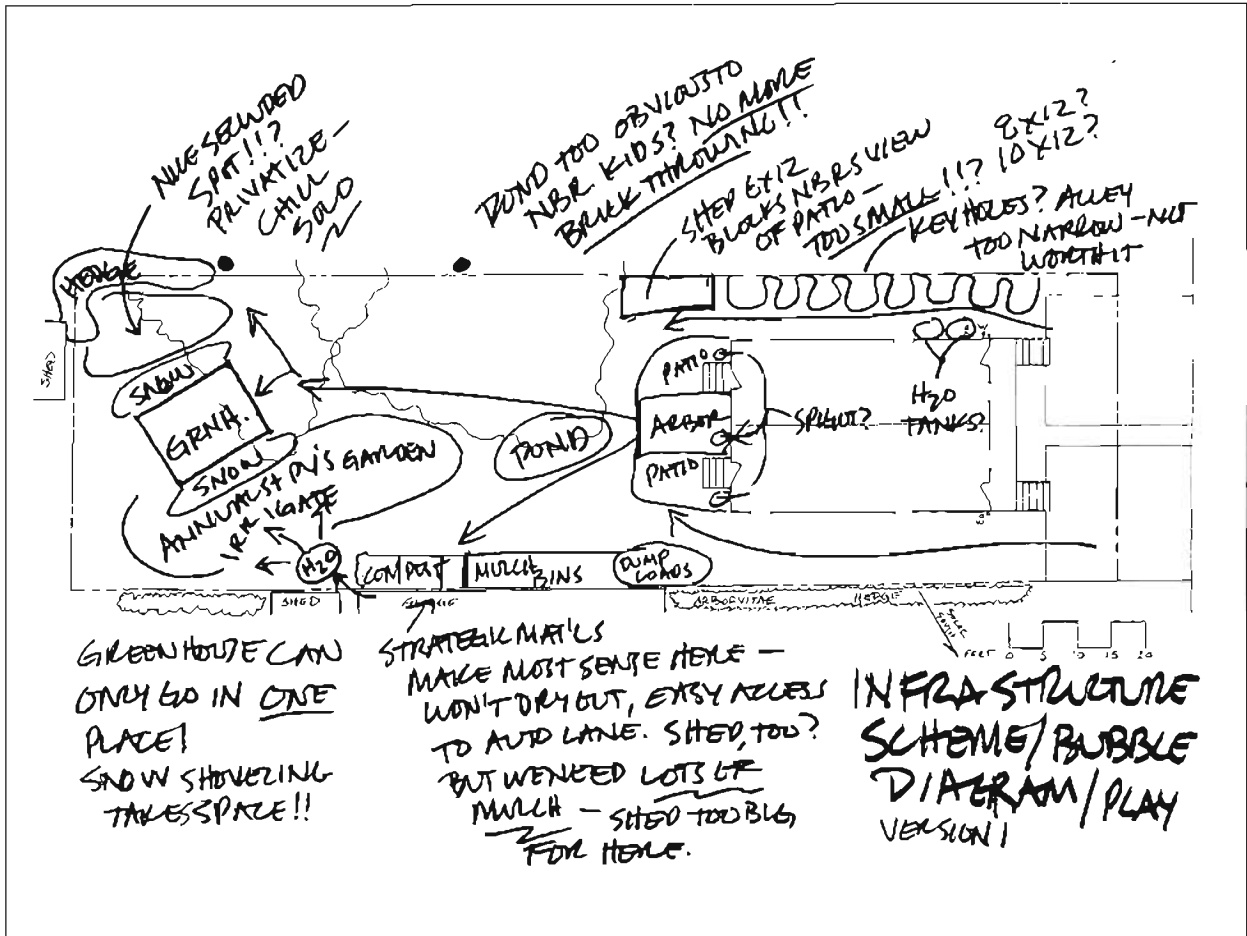 NICE SECLUDED
SPOT!!?
PRIVATIZE –
CHILL
SOLO
POND TOO OBVIOUS TO
NBR. KIDS? NO MORE
BRICK THROWING!!
SHED 6X12
BLOCKS NBRS VIEW
OF PATIO –
TOO SMALL!!?
8X12?
10X12?
KEYHOLES? ALLEY
TOO NARROW – NOT
WORTH IT
HEDGE
SHED
SNOW
GRNH.
SNOW
ANNUALS + PN'S GARDEN
IRRIGATE
H2O
POND
PATIO
ARBOR
PATIO
SPIGOT?
H2O
TANKS?
COMPOST
MULCH BINS
DUMP
LOADS
SHED
ARBORVITAE HEDGE
SOLAR
SOUTH
FEET 0 5 10 15 20
GREENHOUSE CAN
ONLY GO IN ONE
PLACE!
SNOW SHOVELING
TAKES SPACE!!
STRATEGIC MAT'LS
MAKE MOST SENSE HERE –
WON'T DRY OUT, EASY ACCESS
TO AUTO LANE. SHED, TOO?
BUT WE NEED LOTS OF
MULCH – SHED TOO BIG
FOR HERE.
INFRASTRUCTURE
SCHEME/BUBBLE
DIAGRAM/PLAY
VERSION 1